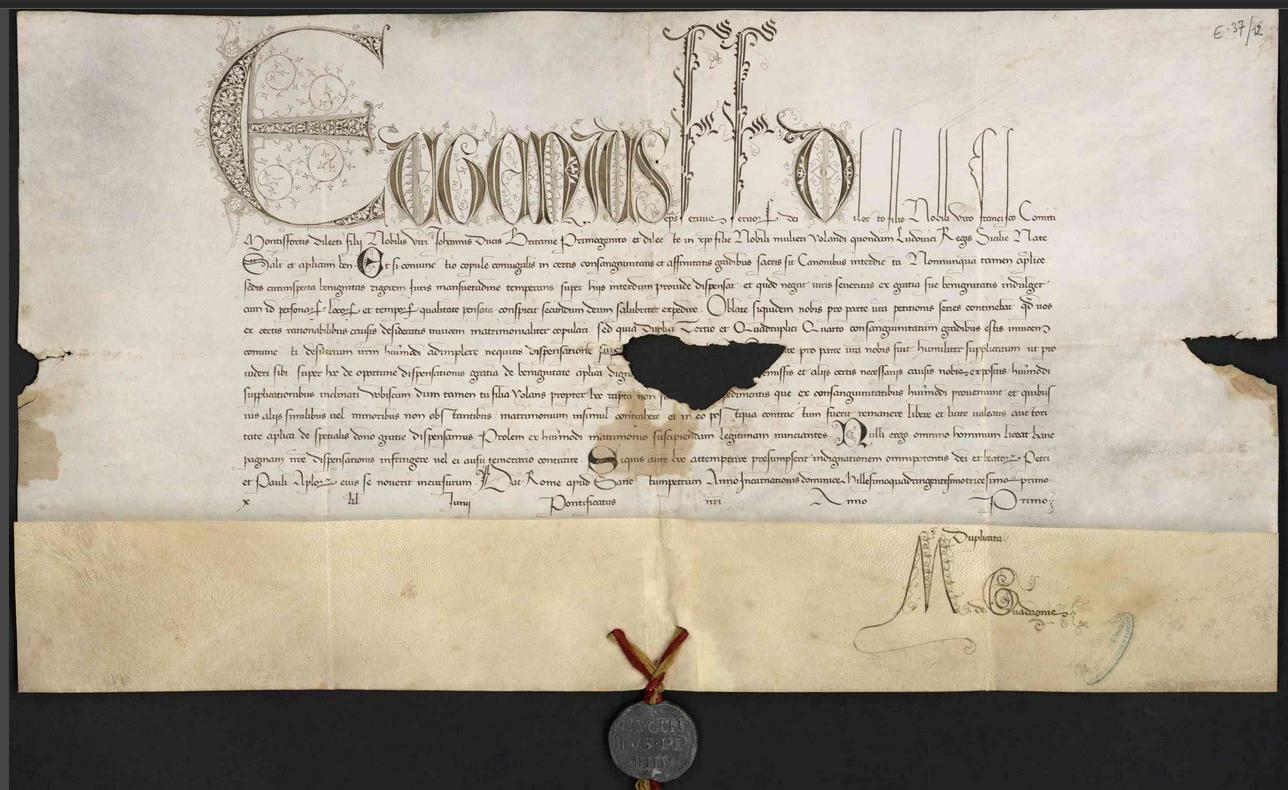 E 37/12
Eugenius eps servus servor dei Dilecto filio Nobili viro francisco Comiti
Montisfortis dilecti filij Nobilis viri Johannis Ducis Britanie Primogenito et dilecte in xpo filie Nobili mulieri Yolandi quondam Ludovici Regis Sicilie Nate
Salt et aplicam ben Et si coniunctio copule coniugalis in certis consanguinitatis et affinitatis gradibus sacris sit Canonibus interdicta Nonnunqua tamen aplice
sedis circumspecta benignitas rigorem Juris mansuetudine temperans super hijs interdum provide dispensat et quod negat iuris severitas ex gratia sue benignitatis indulget
cum id personar locor et tempor qualitate pensata conspicit secundum deum salubriter expedire Oblate siquidem nobis pro parte vra petitionis series continebat qd vos
ex certis rationabilibus causis desideratis invicem matrimonialiter copulari sed quia duplici Tertio et Quadruplici Quarto consanguinitatum gradibus estis invicem
coniuncti desiderium vrm huiusmodi adimplere nequitis dispensatione pro parte vra nobis fuit humiliter supplicatum ut pro
videri sibi super hoc de oportune dispensationis gratia de benignitate aplica premissis et alijs certis necessarijs causis nobis expositis huiusmodi
supplicationibus inclinati vobiscum dum tamen tu filia Yolans propter hoc rapta non que ex consanguinitatibus huiusmodi proveniunt et quibus
vis alijs similibus vel minoribus non obstantibus matrimonium insimul contrahere et in eo postqua contractum fuerit remanere libere et licite valeatis auctori
tate aplica de spetialis dono gratie dispensamus Prolem ex huiusmodi matrimonio suscipiendam legitimam nunciantes Nulli ergo omnino hominum liceat hanc
paginam nre dispensationis infringere vel ei ausu temerario contraire Siquis aute hoc attemptare presumpserit indignationem omnipotentis dei et beator Petri
et Pauli Aplor eius se noverit incursurum Dat Rome apud Sanctumpetrum Anno Incarnationis dominice Millesimoquadringentesimotricesimo primo
x kl Junij Pontificatus nri Anno Primo
Duplicata
M de
EVGEN
IVS PP
IIII